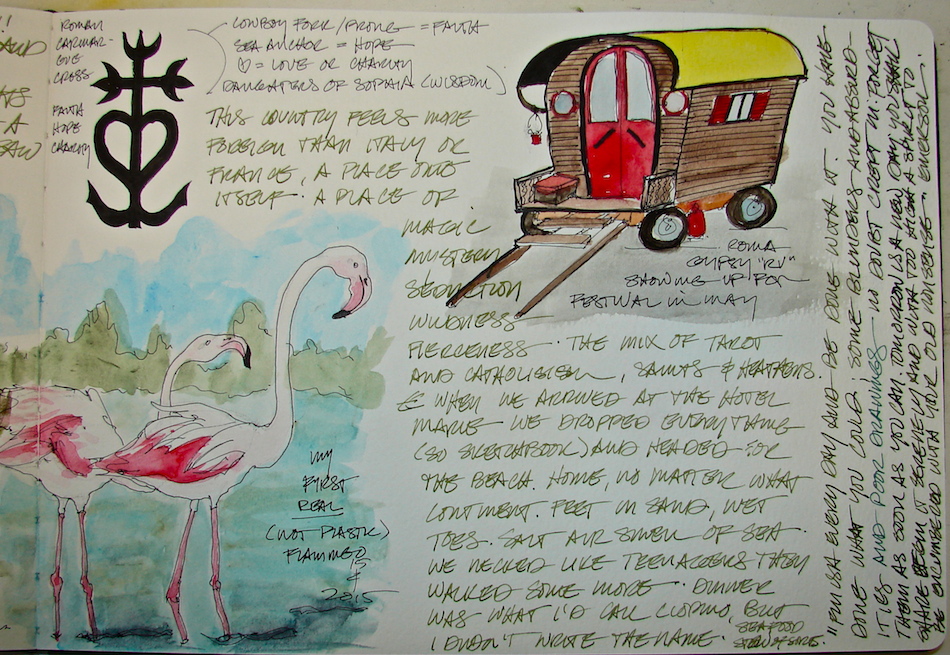 ROMAN
CARMAR-
GUE
CROSS
FAITH
HOPE
CHARITY
COWBOY FORK/PRONG = FAITH
SEA ANCHOR = HOPE
♡ = LOVE OR CHARITY
DAUGHTERS OF SOPHIA (WISDOM)
THIS COUNTRY FEELS MORE
FOREIGN THAN ITALY OR
FRANCE, A PLACE ONTO
ITSELF. A PLACE OF
MAGIC
MYSTERY
SEDUCTION
WILDNESS
FIERCENESS. THE MIX OF TAROT
AND CATHOLICISM, SAINTS & HEATHENS.
WHEN WE ARRIVED AT THE HOTEL
MARIE WE DROPPED EVERYTHING
(SO SKETCHBOOK) AND HEADED FOR
THE BEACH. HOME, NO MATTER WHAT
CONTINENT. FEET IN SAND, WET
TOES. SALT AIR SMELL OF SEA.
WE NECKED LIKE TEENAGERS THEN
WALKED SOME MORE. DINNER
WAS WHAT I'D CALL CIOPINO, BUT
I DIDN'T WRITE THE NAME. SEAFOOD
STEW OF SORTS.
ROMA
GYPSY "RV"
SHOWING UP FOR
FESTIVAL IN MAY
MY
FIRST
REAL
(NOT PLASTIC)
FLAMINGO
2015
"FINISH EVERY DAY AND BE DONE WITH IT. YOU HAVE
DONE WHAT YOU COULD. SOME BLUNDERS AND ABSURD-
ITIES AND POOR DRAWINGS NO DOUBT CREPT IN. FORGET
THEM AS SOON AS YOU CAN. TOMORROW IS A NEW DAY. YOU SHALL
BEGIN IT SERENELY AND WITH TOO HIGH A SPIRIT TO
BE ENCUMBERED WITH YOUR OLD NONSENSE." EMERSON.